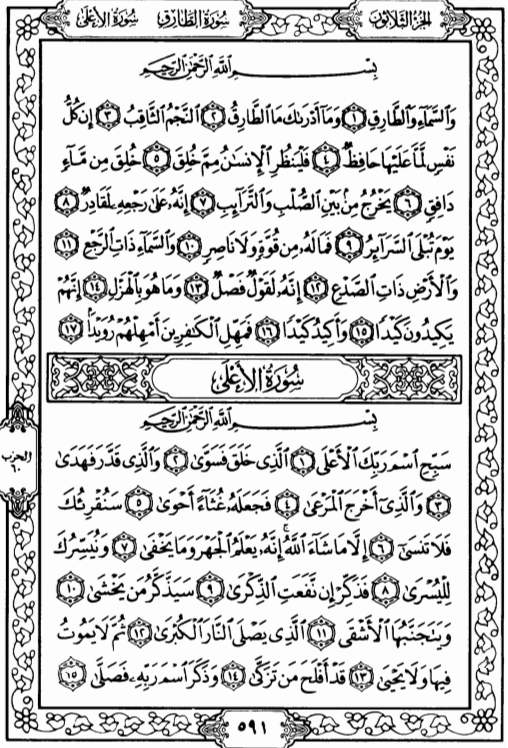 سُورَةُ الأَعْلَى سُورَةُ الطَّارِقِ الجُزْءُ الثَّلَاثُونَ
بِسْمِ اللَّهِ الرَّحْمَٰنِ الرَّحِيمِ
وَالسَّمَاءِ وَالطَّارِقِ ١ وَمَا أَدْرَاكَ مَا الطَّارِقُ ٢ النَّجْمُ الثَّاقِبُ ٣ إِن كُلُّ
نَفْسٍ لَّمَّا عَلَيْهَا حَافِظٌ ٤ فَلْيَنظُرِ الْإِنسَانُ مِمَّ خُلِقَ ٥ خُلِقَ مِن مَّاءٍ
دَافِقٍ ٦ يَخْرُجُ مِن بَيْنِ الصُّلْبِ وَالتَّرَائِبِ ٧ إِنَّهُ عَلَىٰ رَجْعِهِ لَقَادِرٌ ٨
يَوْمَ تُبْلَى السَّرَائِرُ ٩ فَمَا لَهُ مِن قُوَّةٍ وَلَا نَاصِرٍ ١٠ وَالسَّمَاءِ ذَاتِ الرَّجْعِ ١١
وَالْأَرْضِ ذَاتِ الصَّدْعِ ١٢ إِنَّهُ لَقَوْلٌ فَصْلٌ ١٣ وَمَا هُوَ بِالْهَزْلِ ١٤ إِنَّهُمْ
يَكِيدُونَ كَيْدًا ١٥ وَأَكِيدُ كَيْدًا ١٦ فَمَهِّلِ الْكَافِرِينَ أَمْهِلْهُمْ رُوَيْدًا ١٧
سُورَةُ الأَعْلَى
بِسْمِ اللَّهِ الرَّحْمَٰنِ الرَّحِيمِ
سَبِّحِ اسْمَ رَبِّكَ الْأَعْلَى ١ الَّذِي خَلَقَ فَسَوَّىٰ ٢ وَالَّذِي قَدَّرَ فَهَدَىٰ
٣ وَالَّذِي أَخْرَجَ الْمَرْعَىٰ ٤ فَجَعَلَهُ غُثَاءً أَحْوَىٰ ٥ سَنُقْرِئُكَ
فَلَا تَنسَىٰ ٦ إِلَّا مَا شَاءَ اللَّهُ ۚ إِنَّهُ يَعْلَمُ الْجَهْرَ وَمَا يَخْفَىٰ ٧ وَنُيَسِّرُكَ
لِلْيُسْرَىٰ ٨ فَذَكِّرْ إِن نَّفَعَتِ الذِّكْرَىٰ ٩ سَيَذَّكَّرُ مَن يَخْشَىٰ ١٠
وَيَتَجَنَّبُهَا الْأَشْقَى ١١ الَّذِي يَصْلَى النَّارَ الْكُبْرَىٰ ١٢ ثُمَّ لَا يَمُوتُ
فِيهَا وَلَا يَحْيَىٰ ١٣ قَدْ أَفْلَحَ مَن تَزَكَّىٰ ١٤ وَذَكَرَ اسْمَ رَبِّهِ فَصَلَّىٰ ١٥
الحزب
٦٠
٥٩١